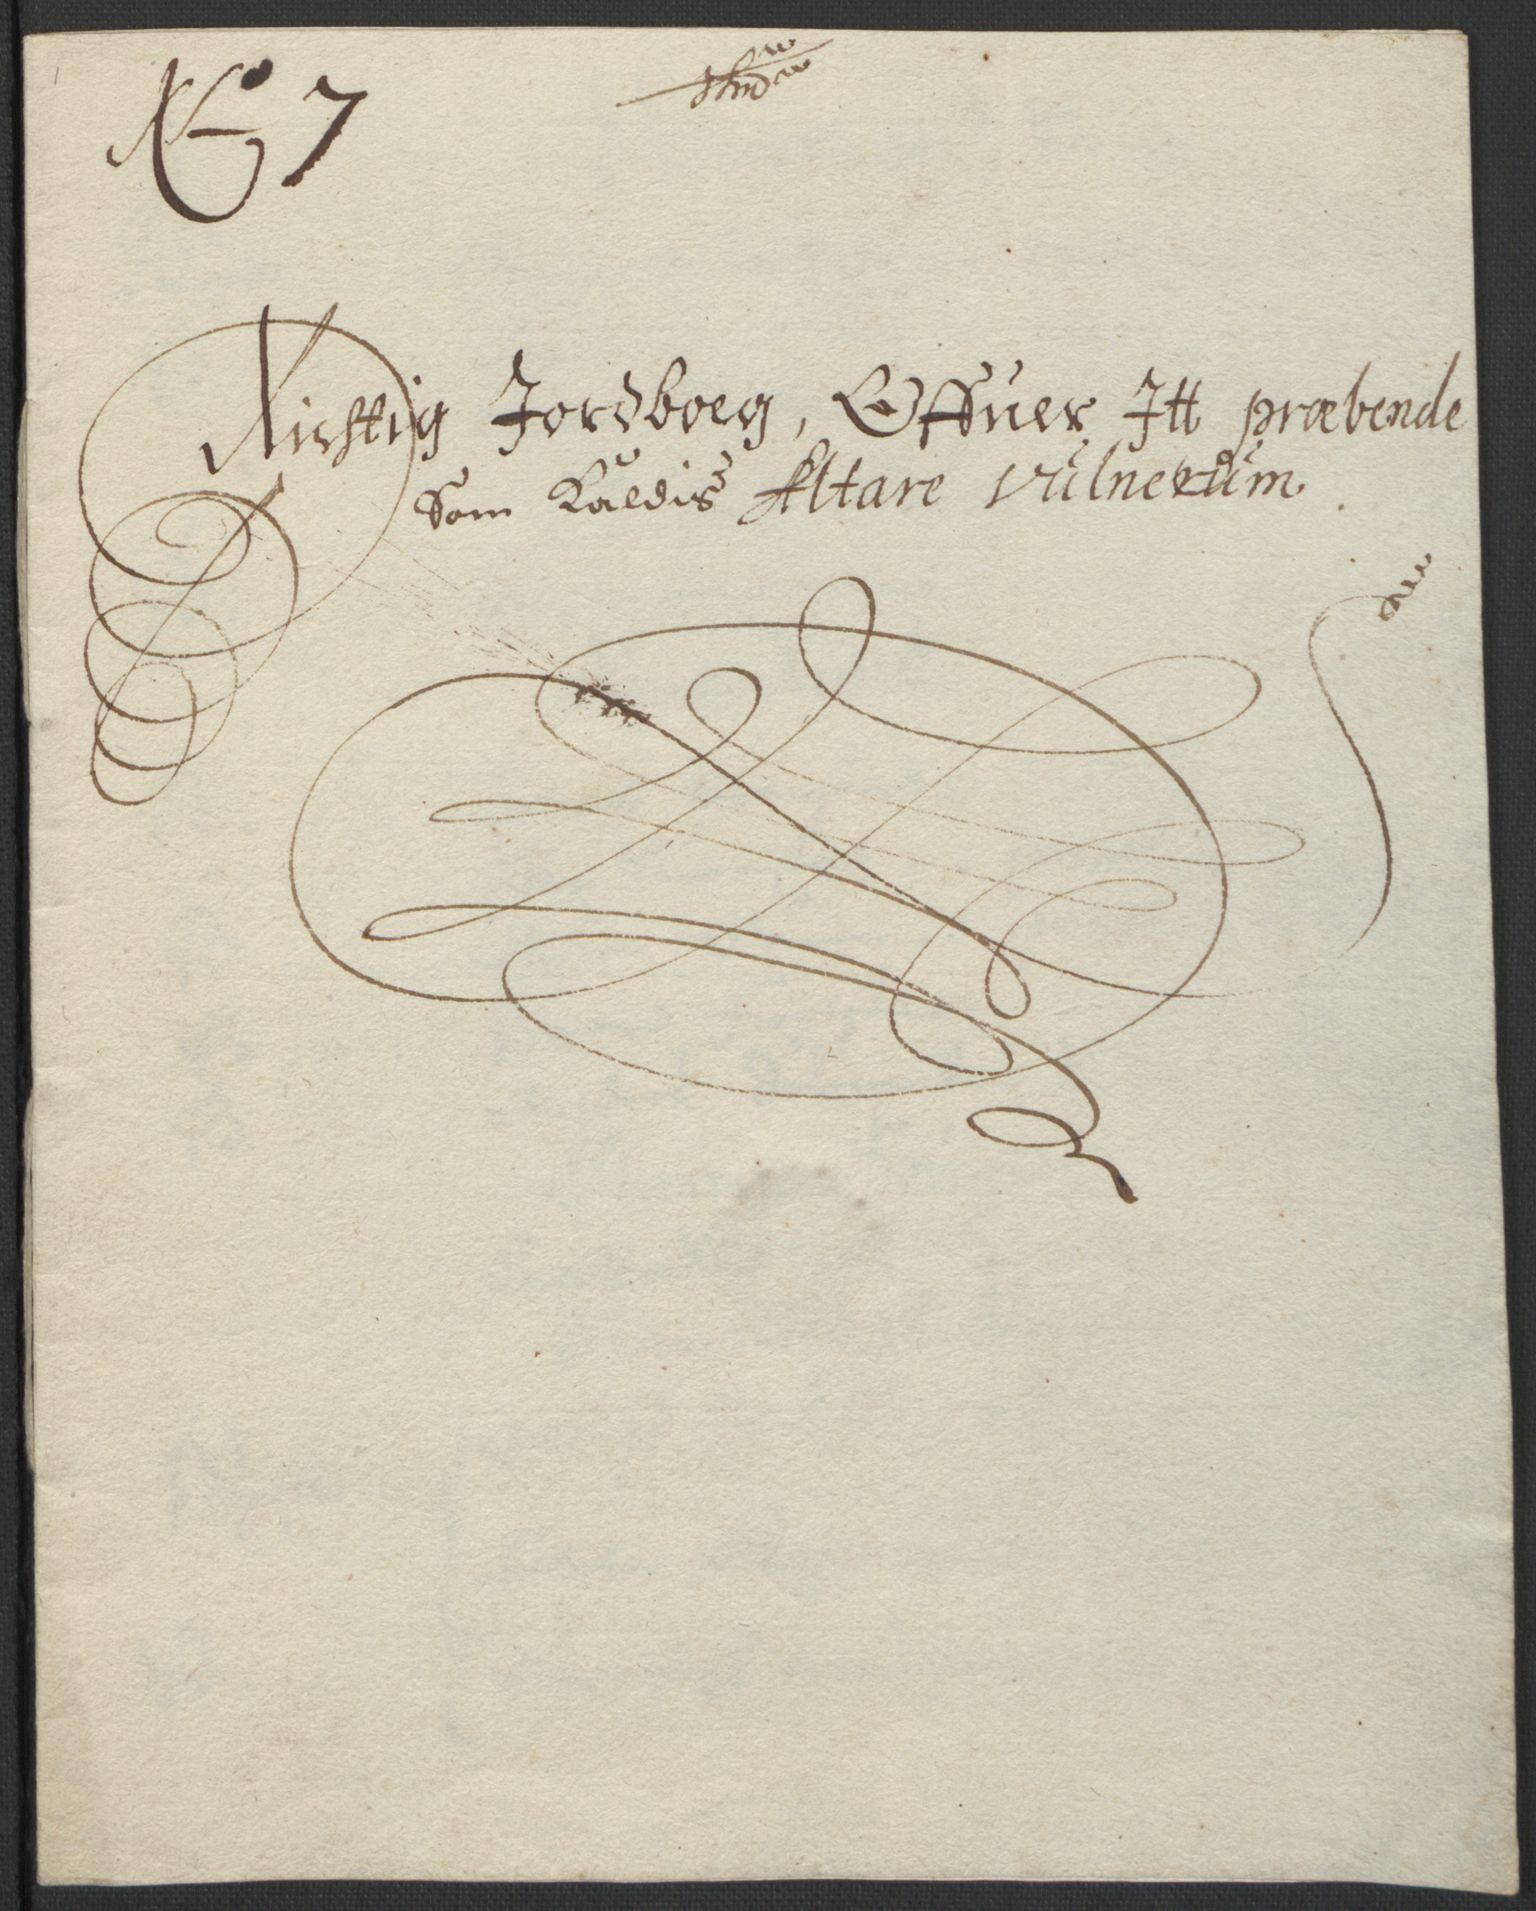 No 7
Richtig Jordboeg, Offuer Itt præbende
Som Kaldis Altare Vulnerum.